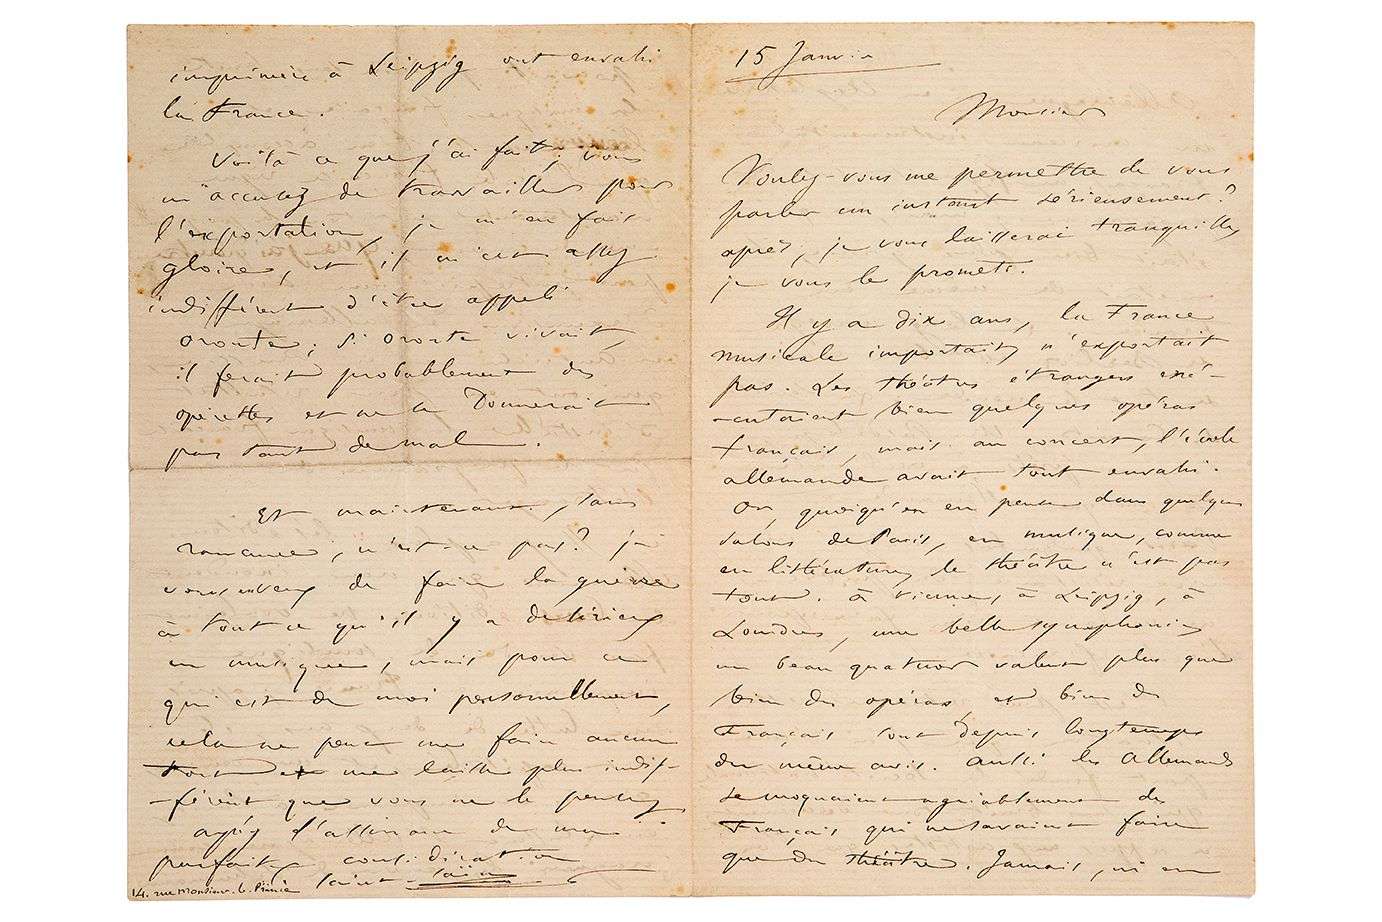 15 Janvier
Monsieur
Voulez-vous me permettre de vous
parler un instant sérieusement?
après, je vous laisserai tranquille,
je vous le promets.
Il y a dix ans, la France
musicale importait, n'exportait
pas. Les théâtres étrangers exé-
-cutaient bien quelques opéras
français, mais au concert, l'école
allemande avait tout envahi.
Or, quoiqu'on en pense dans quelques
salons de Paris, en musique, comme
en littérature, le théâtre n'est pas
tout. à Vienne, à Leipzig, à
Londres, une belle symphonie,
un beau quatuor valent plus que
bien des opéras, et bien des
Français sont depuis longtemps
du même avis. Aussi les Allemands
se moquaient agréablement des
Français qui ne savaient faire
que du théâtre. Jamais, ni en
imprimés à Leipzig ont envahi
la France.
Voilà ce que j'ai fait; vous
m'accusez de travailler pour
l'exportation, je m'en fais
gloire, et il m'est assez
indifférent d'être appelé
Oronte; si Oronte vivait,
il ferait probablement des
opérettes et ne se donnerait
pas tant de mal.
Et maintenant, sans
rancune, n'est-ce pas?
de faire la guerre
à tout ce qu'il y a de sérieux
en musique, mais pour ce
qui est de moi personnellement,
cela ne peut me faire aucun
tort et me laisse plus indif-
-férent que vous ne le pensez
agréez l'assurance de ma
parfaite considération
Saint-Saëns
14. rue Monsieur le Prince